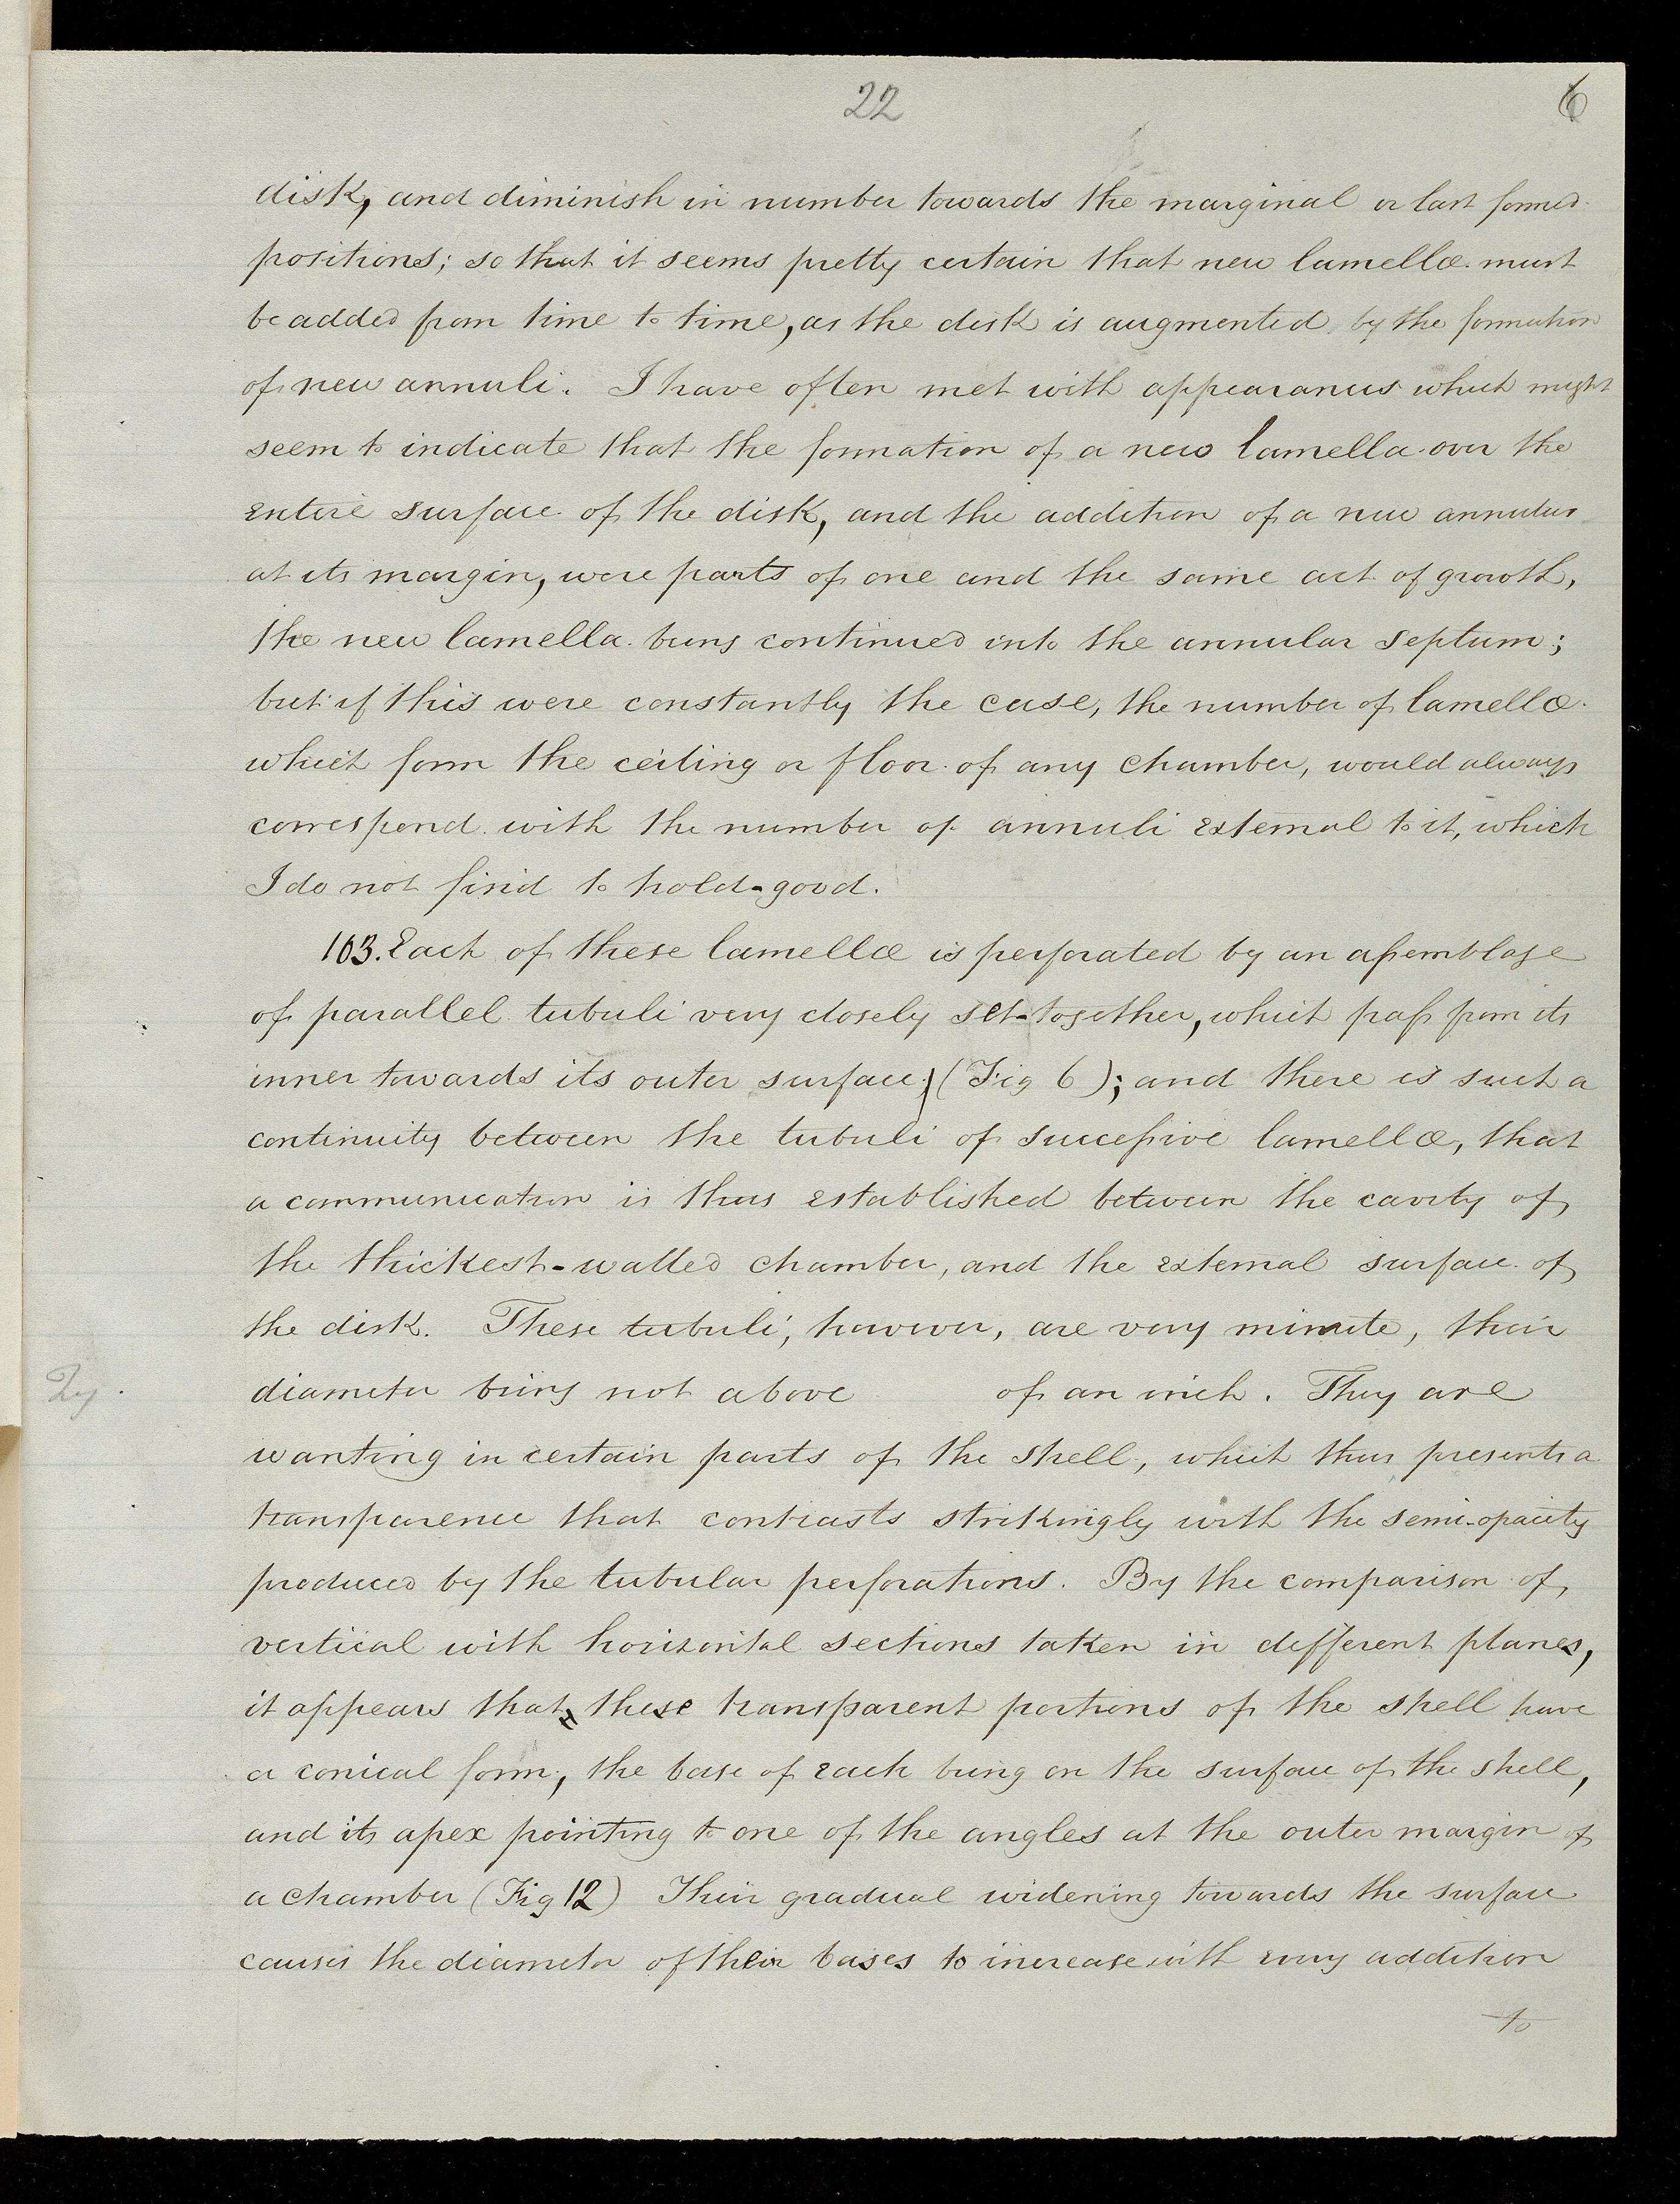 22
6
disk, and diminish in number towards the marginal or last formed
positions; so that it seems pretty certain that new lamellæ must
be added from time to time, as the disk is augmented by the formation
of new annuli. I have often met with appearances which might
seem to indicate that the formation of a new lamella over the
entire surface of the disk, and the addition of a new annulus
at its margin, were parts of one and the same act of growth,
the new lamella being continued into the annular septum;
but if this were constantly the case, the number of lamellæ
which form the ceiling or floor of any chamber, would always
correspond with the number of annuli external to it, which
I do not find to hold-good.
103. Each of these lamellæ is perforated by an assemblage
of parallel tubuli very closely set-together, which pass from its
inner towards its outer surface, (Fig 6); and there is such a
continuity between the tubuli of successive lamellæ, that
a communication is thus established between the cavity of
the thickest-walled chamber, and the external surface of
the disk. These tubuli, however, are very minute, their
diameter being not above of an inch. They are
wanting in certain parts of the shell, which thus presents a
transparence that contrasts strikingly with the semi-opacity
produced by the tubular perforations. By the comparison of
vertical with horizontal sections taken in different planes,
it appears that these transparent portions of the shell have
a conical form, the base of each being on the surface of the shell,
and its apex pointing to one of the angles at the outer margin of
a chamber (Fig 12) Their gradual widening towards the surface
causes the diameter of their bases to increase with every addition
to